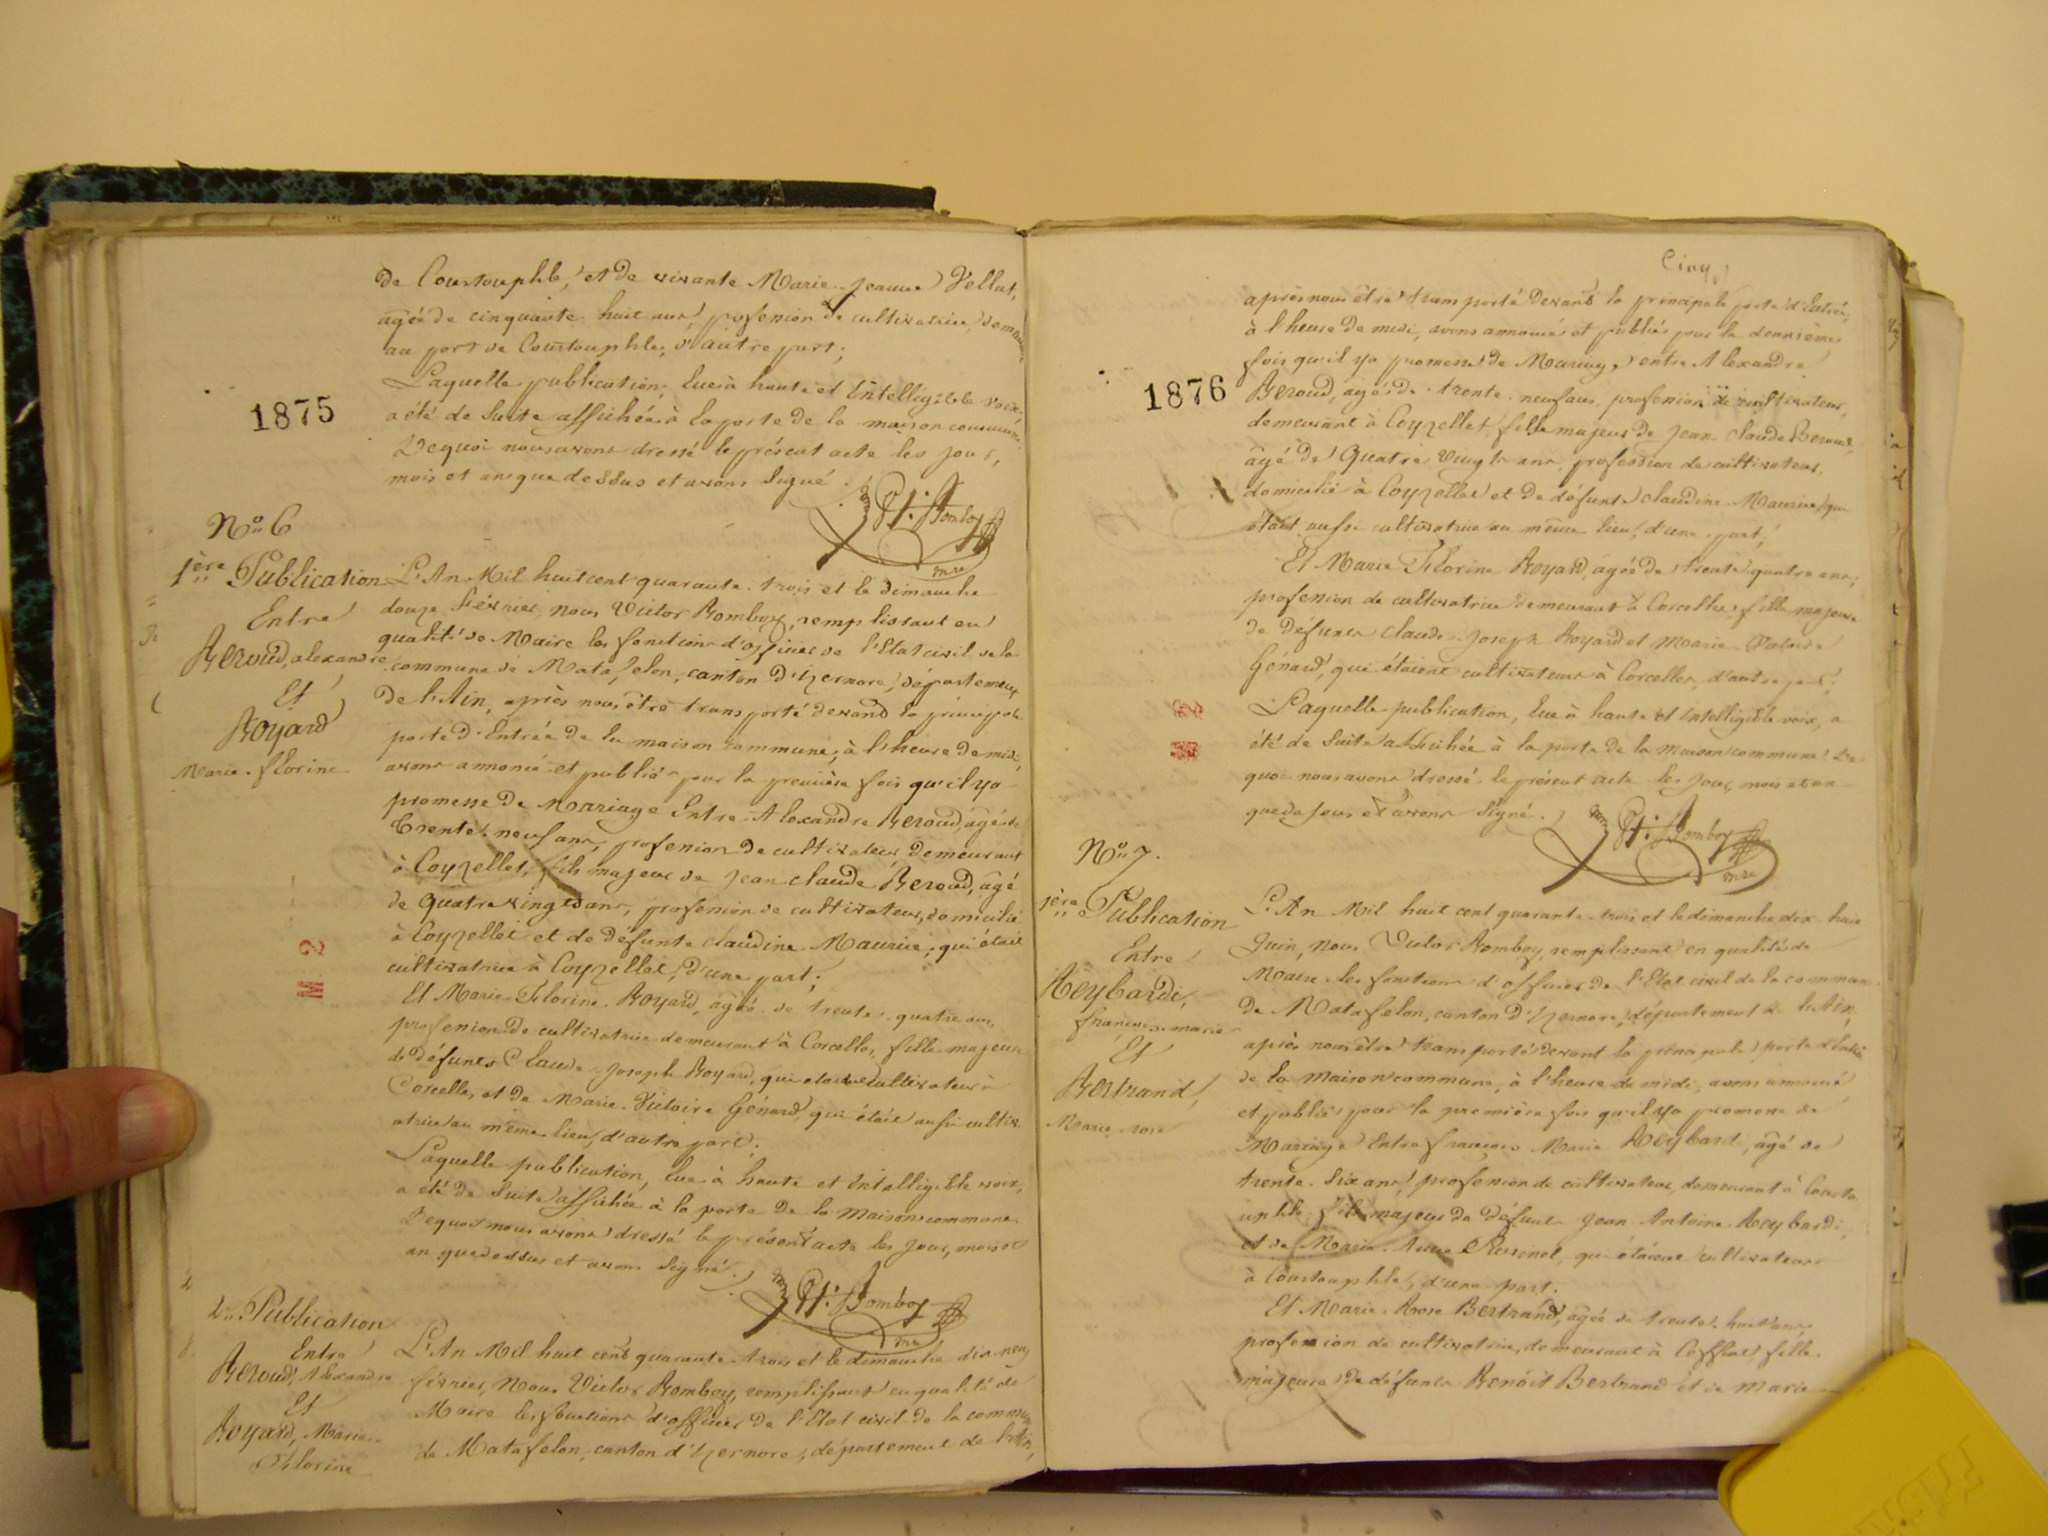 de Courtouphle, et de vivante Marie-Jeanne Vellut,
agée de cinquante-huit ans, profession de cultivatrice, demeurant
au port de Courtouphle, d'autre part;
Laquelle publication, lue à haute et Intelligible voix,
a été de suite affichée à la porte de la maison commune
Dequoi nous avons dressé le présent acte les jour,
mois et an que dessus et avons Signé.
1875
Vr Romboy
mre
No 6
1ère Publication
Entre
Béroud, alexandre
Et
Royard
Marie-florine
L'An Mil huit cent quarante-trois et le dimanche
douze Février, nous Victor Romboy, remplissant en
qualité de Maire les fonctions d'officier de l'Etat civil de la
commune de Matafelon, canton d'Izernore, département
de l'Ain, après nous être transporté devand la principale
porte d'Entrée de la maison commune, à l'heure de midi,
avons annoncé et publié pour la première fois qu'il y a
promesse de Mariage Entre Alexandre Béroud, âgé de
Trente-neuf ans, profession de cultivateur demeurant
à Coyzellet, fils majeur de Jean claude Béroud, âgé
de quatre vingts ans, profession de cultivateur, domicilié
à Coyzellet et de défunte claudine Maurice, qui était
cultivatrice à Coyzellet, d'une part;
Et Marie-Florine Royard, agée de trente-quatre ans,
profession de cultivatrice demeurant à Corcelles, fille majeure
de défunts Claude-Joseph Royard, qui etait cultivateur à
Corcelles, et de Marie-Victoire Génard qui était aussi cultiv-
atrice au même lieu, d'autre part;
Laquelle publication, lue à haute et Intelligible voix,
a été de suite affichée à la porte de la Maison commune
Dequoi nous avons dressé le présent acte les jour, mois et
an que dessus et avons Signé.
Vr Romboy
mre
2e Publication
Entre
Béroud, Alexandre
Et
Royard, Marie-
Florine
L'An Mil huit cent quarante-trois et le dimanche dix-neuf
février, Nous Victor Romboy, remplissant en qualité de
Maire les fonctions d'officier de l'Etat civil de la commune
de Matafelon, canton d'Izernore, département de l'Ain,
Cinq
après nous être transporté devant la principale porte d'Entrée,
à l'heure de midi, avons annoncé et publié pour la deuxième
fois qu'il y a promesse de Mariage, entre Alexandre
Béroud, agé de trente-neuf ans, profession de cultivateur,
demeurant à Coyzellet, fils majeur de Jean claude Beroud,
âgé de Quatre Vingts ans, profession de cultivateur,
domicilié à Coyzellet et de défunte claudine Maurice, qui
était aussi cultivatrice au même lieu, d'une part;
1876
Et Marie Florine Royard, agée de trente-quatre ans,
profession de cultivatrice demeurant à Corcelles, fille majeure
de défunts Claude-Joseph Royard et Marie-Victoire
Génard, qui étaient cultivateurs à Corcelles, d'autre part;
Laquelle publication, lue à haute et Intelligible voix, a
été de suite affichée à la porte de la Maison commune. De
quoi nous avons dressé le présent acte les jour, mois et an
que dessus et avons Signé.
Vr Romboy
mre
No 7.
1ère Publication
Entre
Reybardi,
françois-marie
Et
Bertrand,
Marie-rose
L'An Mil huit cent quarante-trois et le dimanche dix-huit
Juin, nous Victor Romboy, remplissant en qualité de
Maire les fonctions d'officier de l'Etat civil de la commune
de Matafelon, canton d'Izernore, département de l'Ain,
après nous être transporté devant la principale porte d'Entrée
de la Maison commune, à l'heure de midi, avons annoncé
et publié pour la première fois qu'il y a promesse de
Mariage Entre françois Marie Reybard, âgé de
trente-six ans, profession de cultivateur, demeurant à Courto-
uphle, fils majeur de défunts Jean Antoine Reybardi,
et de Marie-Anne qui étaient cultivateurs
à Courtouphle, d'une part.
Et Marie-Rose Bertrand, agée de trente-huit ans,
profession de cultivatrice, demeurant à fille
majeure de défunts Benoît Bertrand et de Marie